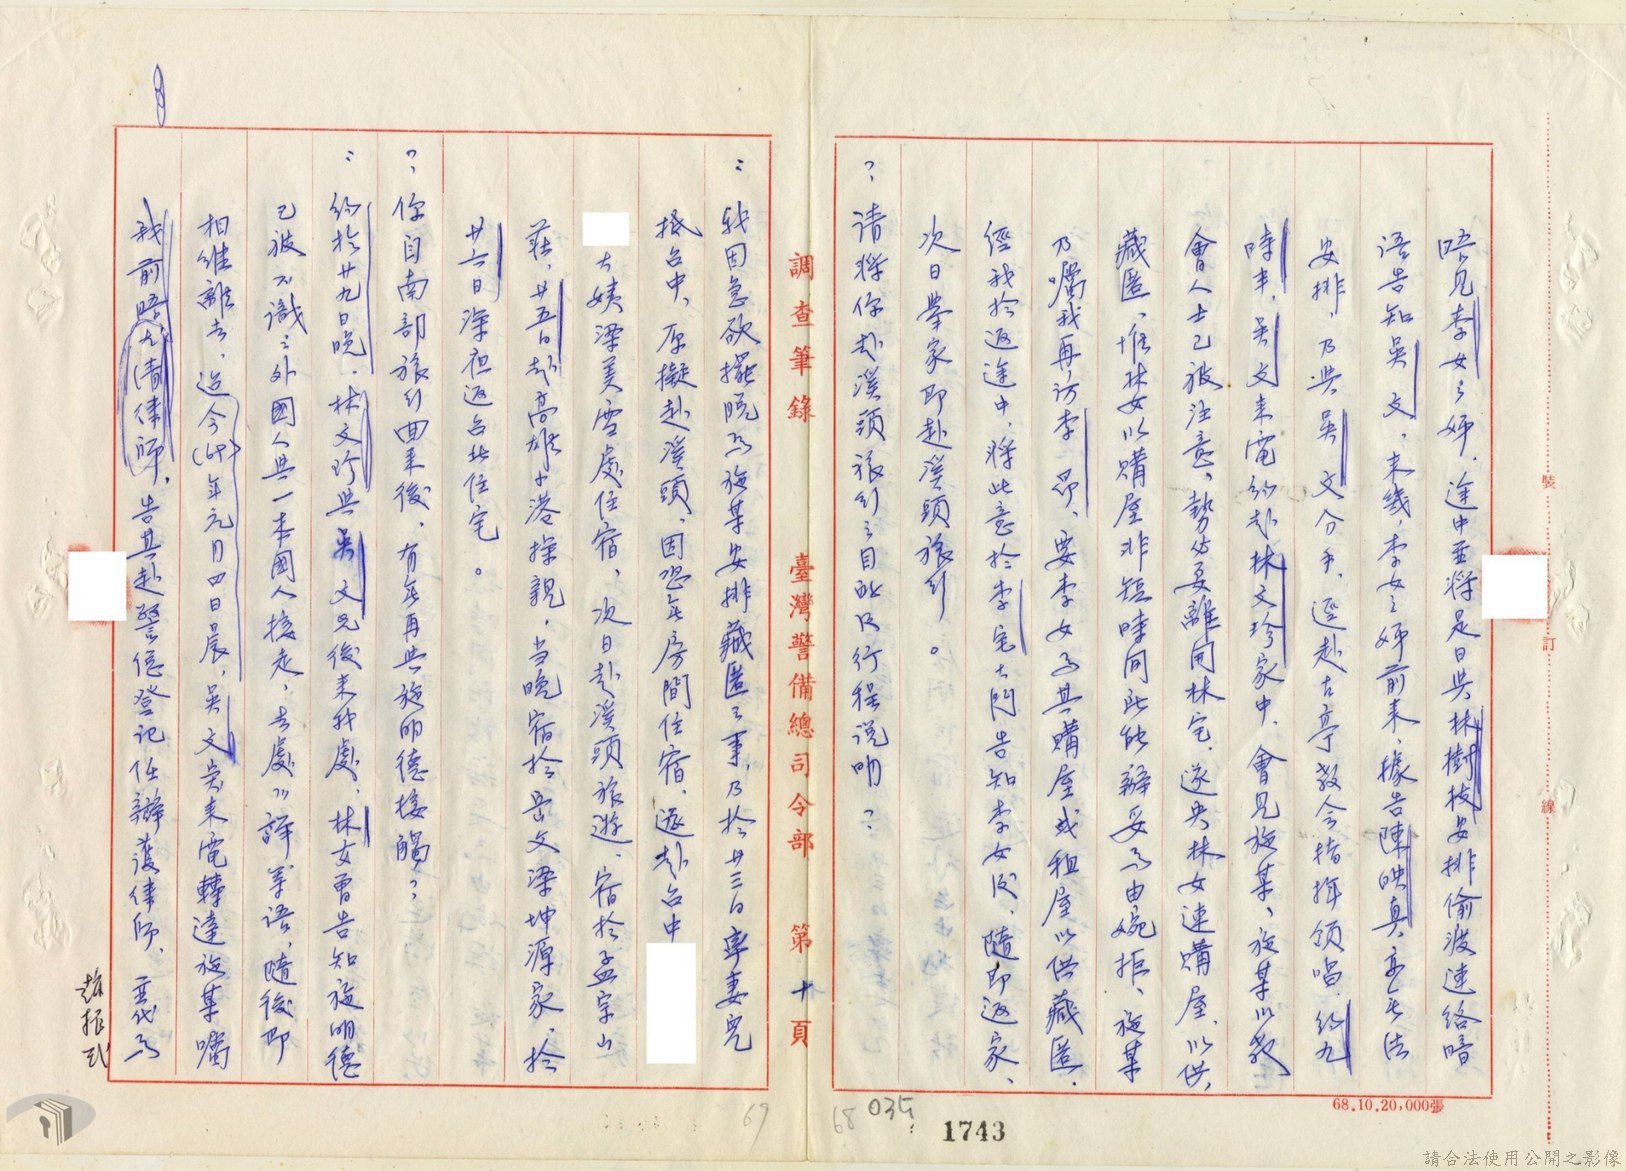 晤見李女之姊，途中並將是日與林樹枝安排偷渡連絡暗
語告知吳文，未幾，李女之姊前來，據告陳映真亦無法
安排，乃與吳文分手，逕赴古亭教會指揮領唱，約九
時半，吳文來電約赴林文珍家中，會見施某，施某以教
會人士已被注意，勢必要離開林宅，遂央林女速購屋，以供
藏匿，惟林女以購屋非短時間所能辦妥為由婉拒，施某
乃囑我再訪李昂，要李女為其購屋或租屋以供藏匿，
經我於返途中，將此意於李宅大門告知李女後，隨即返家，
次日舉家即赴溪頭旅行。
？請將你赴溪頭旅行之目的及行程說明？
調查筆錄 臺灣警備總司令部 第十頁
：我因急欲擺脫為施某安排藏匿之事，乃於廿三日率妻兒
抵台中，原擬赴溪頭，因恐無房間住宿，返赴台中
大姨梁美雪處住宿，次日赴溪頭旅遊，宿於孟宗山
莊，廿五日赴高雄小港探親，當晚宿於岳父梁坤源家，於
廿六日深夜返台北住宅。
？你自南部旅行回來後，有無再與施明德接觸？
：約於廿九日晚，林文珍與吳文兄後來我處，林女曾告知施明德
已被不識之外國人與一本國人接走，去處不詳等語，隨後即
相繼離去，迨今（69）年元月四日晨，吳文突來電轉達施某囑
我前晤尤清律師，告其赴警總登記任辯護律師，並代為
趙振貳
裝
訂
線
68.10.20,000張
035
68
69
1743
請合法使用公開之影像